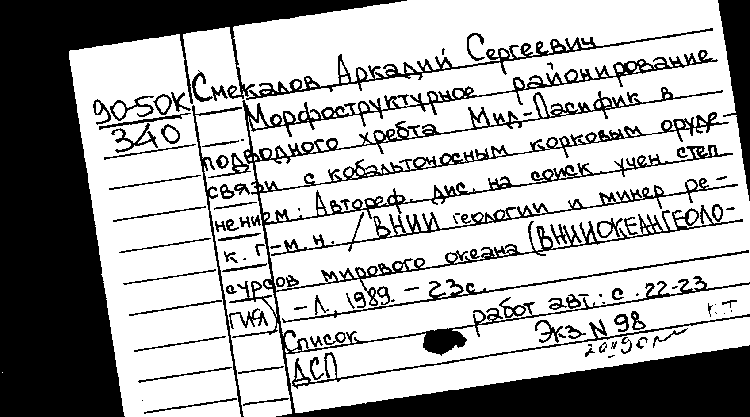 90-50К
340
Смекалов, Аркадий Сергеевич
Морфоструктурное районирование
подводного хребта Мид-Пасифик в
связи с кобальтоносным корковым оруде-
нением: Автореф. дис. на соиск учен. степ
к. г-м. н. / ВНИИ геологии и минер ре-
сурсов мирового океана (ВНИИОКЕАНГЕОЛО-
ГИЯ). - Л, 1989 - 23с.
Список работ авт.: с. 22-23
ДСП Экз. N 98
к.т